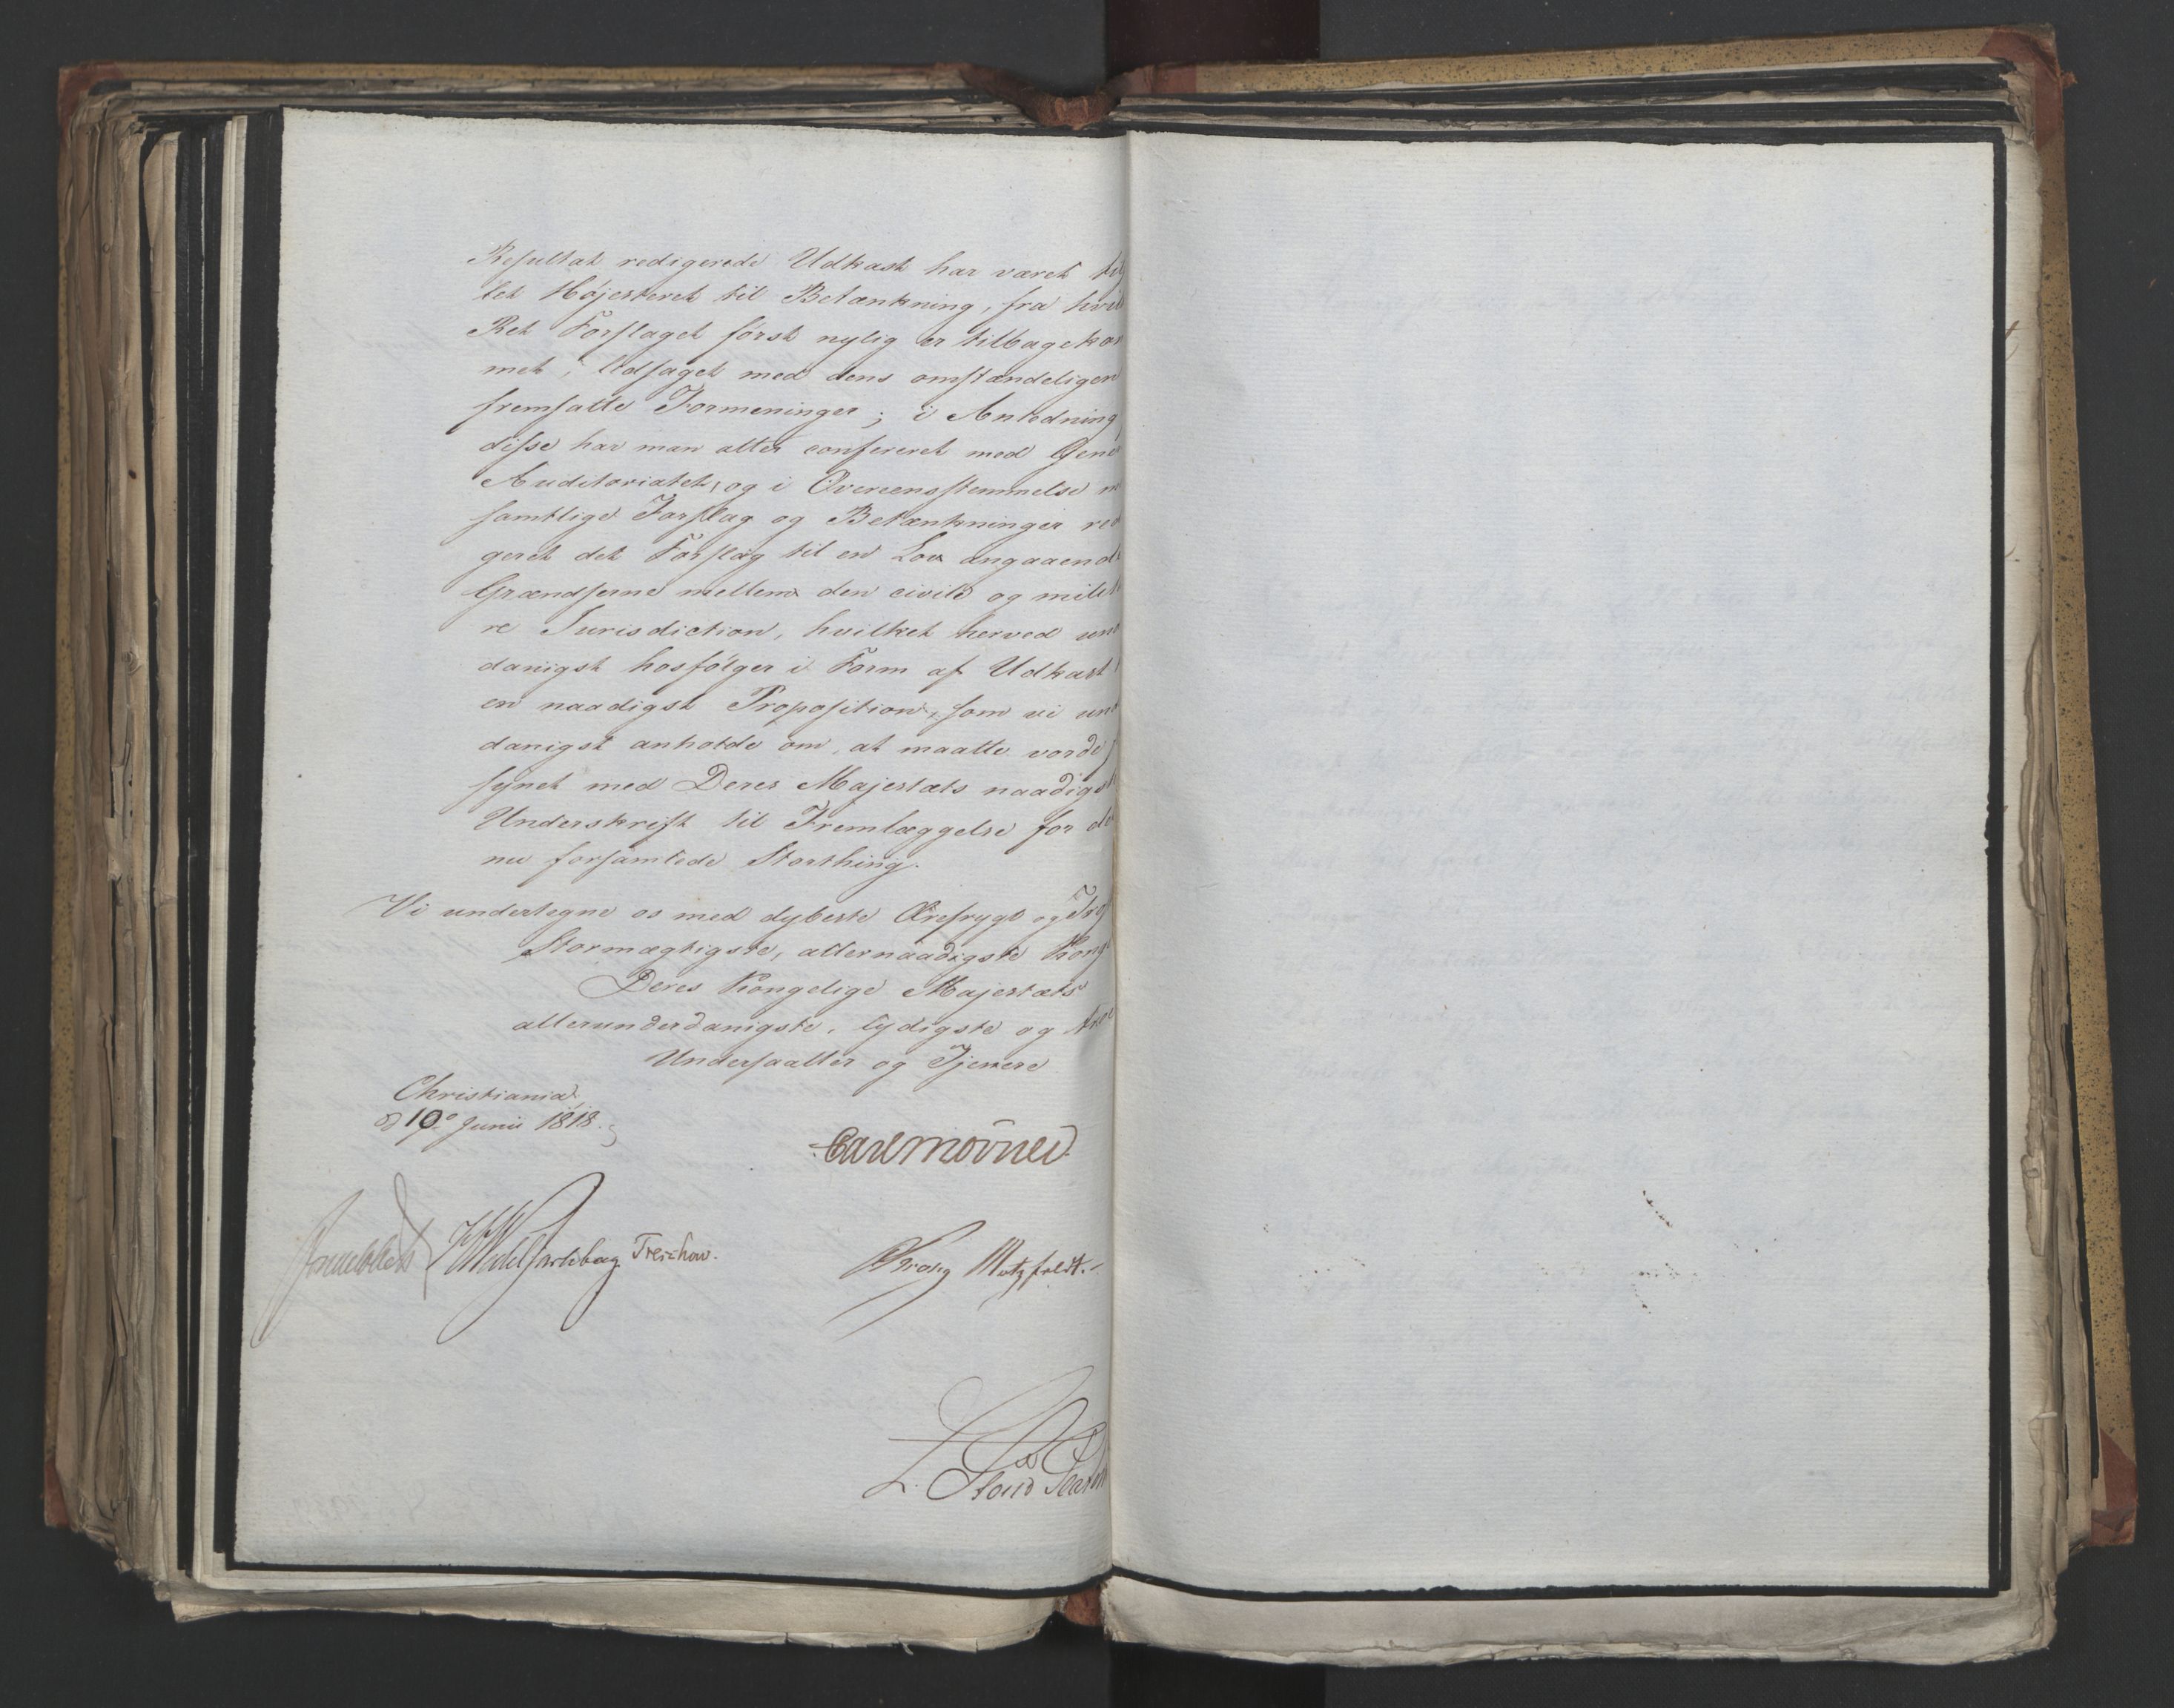 Resultat redigerede Udkast har været til
let Høiesteret til Betænkning, fra hvil
Ret Forslaget først nylig er tilbagekom
met, ledsaget med dens omstændeligen
fremsatte Formeninger; i Anledning
disse har man atter confereret med Gene
Auditoriatet, og i Overeensstemmelse m
samtlige Forslag og Betænkninger red
geret det Forslag til en Lov angaaende
Grændserne mellem den civile og milit
re Jurisdiction, hvilket herved und
danigst hosfølger i Form af Udkast
en naadigst Proposition, som vi und
danigst anholde om, at maatte vorde
synet med Deres Majestæts naadigst
Underskrift til Fremlæggelse for de
nu forsamlede Storthing.
Vi undertegne os med dybeste Ærefrygt og
Stormægtigste, allernaadigste Kong
Deres Kongelige Majestæts
allerunderdanigste, lydigste og
Undersaatter og Tjenere
Christiania
d 10de Junii 1818.
Carl Mörner
Wedel Jarlsberg Treschow. Krog Motzfeldt.
L.